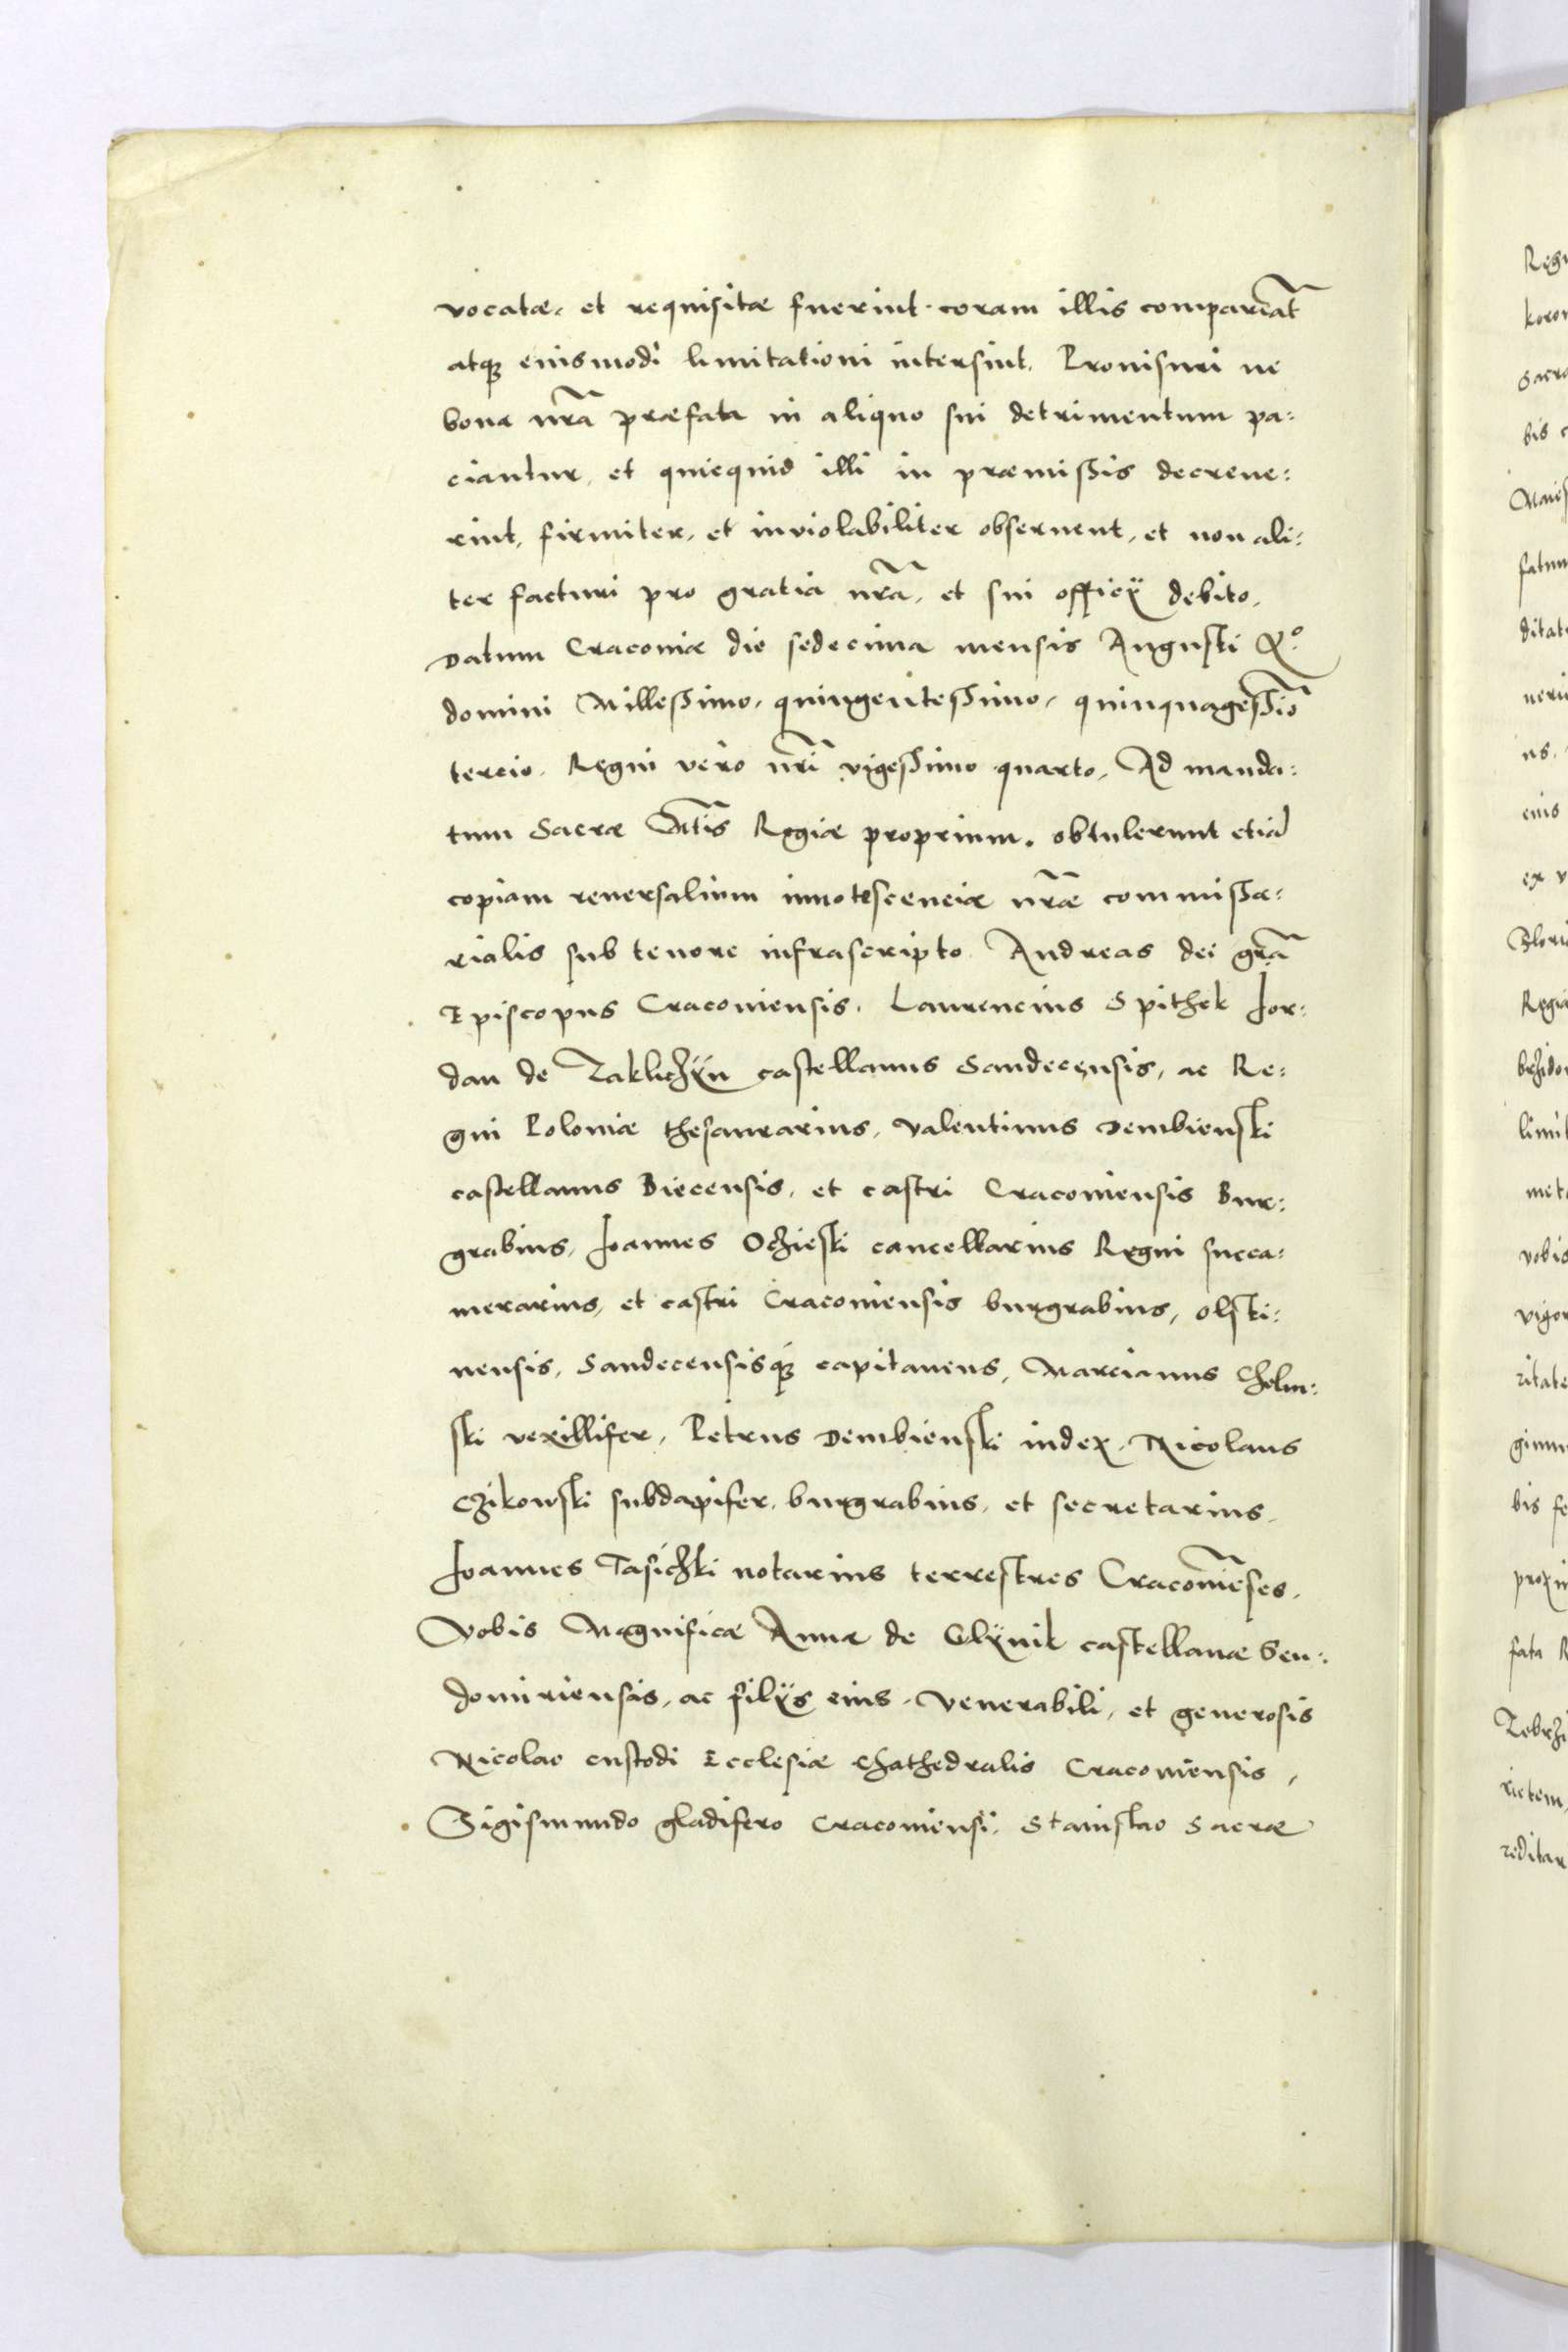 vocatæ, et requisitæ fuerint. coram illis compareāt
atq; eiusmodi limitationi intersint. Provisuri ne
bona nr̃a præfata in aliquo sui detrimentum pa:
ciantur, et quicquid illi in præmissis decreve:
rint, firmiter, et inviolabiliter observent, et non ali:
ter facturi pro gratia nr̃a, et sui officÿ debito.
Datum Cracoviæ die sedecima mensis Augusti Aº
domini Millessimo, quingentessimo, quinquagessīo
tercio. Regni vero nr̃i vigessimo quarto. Ad manda:
tum Sacræ Mtis Regiæ proprium. obtulerunt etiā
copiam reversalium innotescenciæ nr̃æ commissa:
rialis sub tenore infrascripto. Andreas dei gr̃a
Episcopus Cracoviensis. Laurencius Spithek Jor:
dan de Zaklichÿn castellanus Sandecensis, ac Re:
gni Poloniæ thesaurarius, Valentinus Dembienski
castellanus Biecensis, et castri Cracoviensis Bur:
grabius, Joannes Oczieski cancellarius Regni succa:
merarius, et castri Cracoviensis burgrabius, olsti:
nensis, Sandecensisq; capitaneus, Marcianus Chelm:
ski vexillifer, Petrus Dembienski iudex, Nicolaus
Czikowski subdapifer, burgrabius, et secretarius,
Joannes Tasiczki notarius terrestres Cracoviēses.
Vobis Magnificæ Annæ de Glÿnik castellanæ Sen:
domiriensis, ac filÿs eius. Venerabili, et generosis
Nicolao custodi Ecclesiæ Chathedralis Cracoviensis,
Sigismundo gladifero Cracoviensi. Stanislao Sacræ